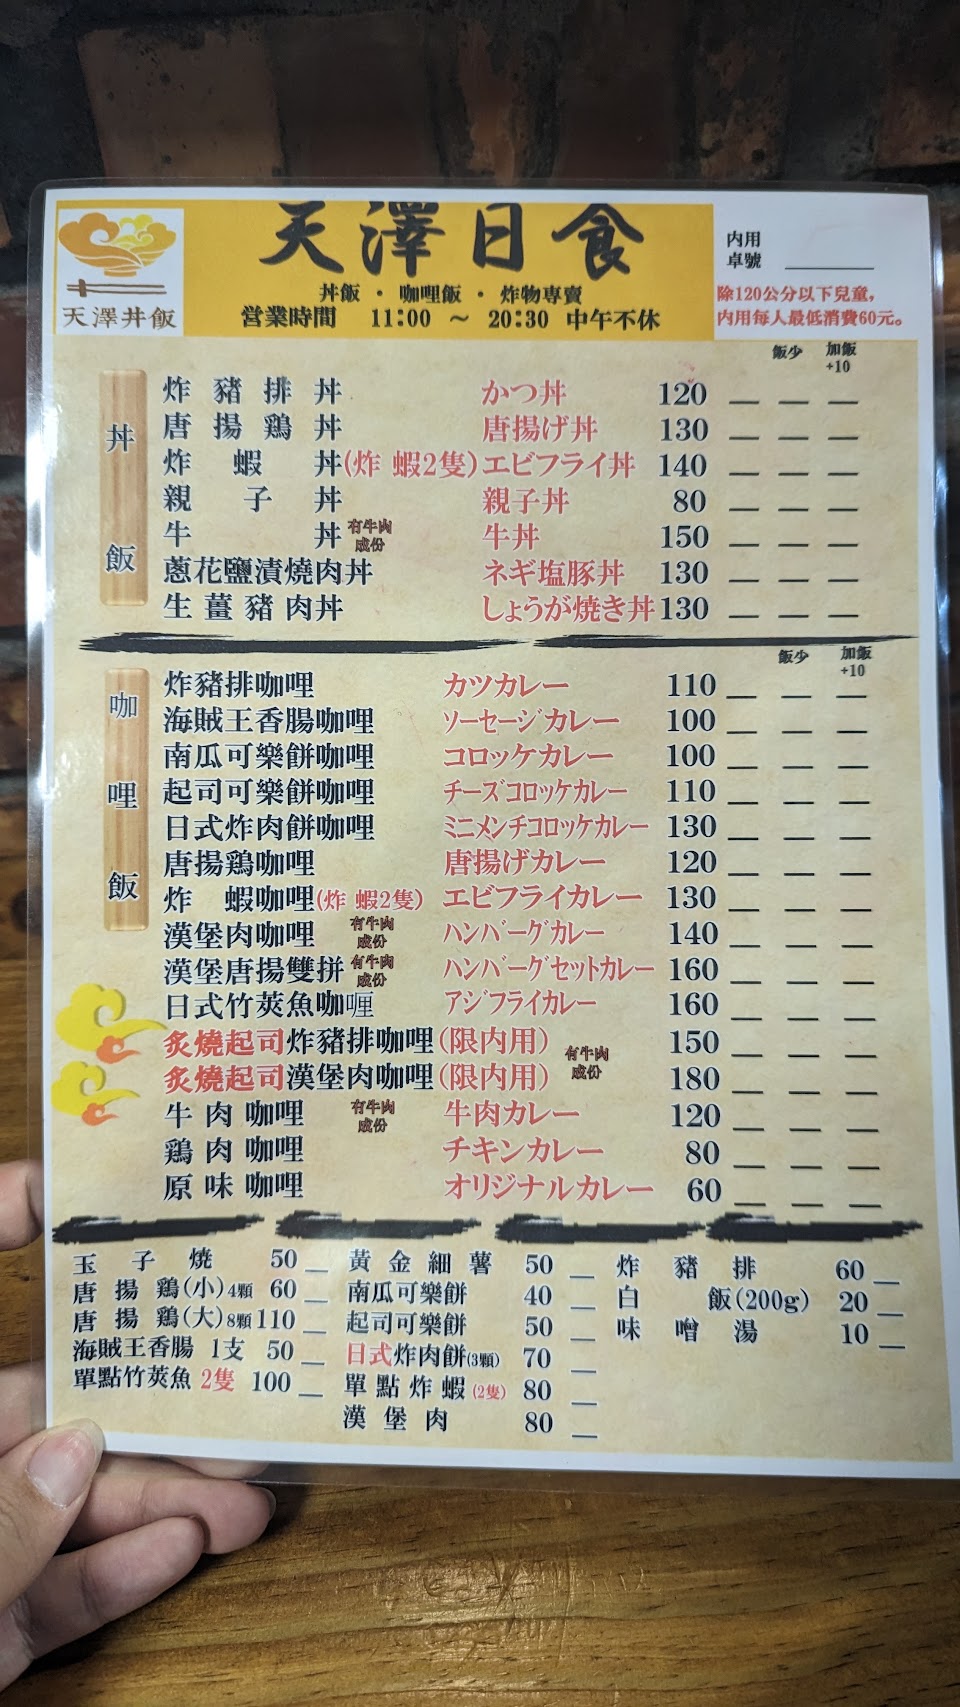 天澤丼飯
天澤日食
丼飯 · 咖哩飯 · 炸物專賣
営業時間 11:00 ～ 20:30 中午不休
内用
卓號
除120公分以下兒童，
内用每人最低消費60元。
飯少 加飯
+10
丼飯
炸豬排丼 かつ丼 120
唐揚鶏丼 唐揚げ丼 130
炸蝦丼(炸蝦2隻) エビフライ丼 140
親子丼 親子丼 80
牛丼 有牛肉成份 牛丼 150
蔥花鹽漬燒肉丼 ネギ塩豚丼 130
生薑豬肉丼 しょうが焼き丼 130
飯少 加飯
+10
咖哩飯
炸豬排咖哩 カツカレー 110
海賊王香腸咖哩 ソーセージカレー 100
南瓜可樂餅咖哩 コロッケカレー 100
起司可樂餅咖哩 チーズコロッケカレー 110
日式炸肉餅咖哩 ミニメンチコロッケカレー 130
唐揚鶏咖哩 唐揚げカレー 120
炸蝦咖哩(炸蝦2隻) エビフライカレー 130
漢堡肉咖哩 有牛肉成份 ハンバーグカレー 140
漢堡唐揚雙拼 有牛肉成份 ハンバーグセットカレー 160
日式竹莢魚咖喱 アジフライカレー 160
炙燒起司炸豬排咖哩(限内用) 150
炙燒起司漢堡肉咖哩(限内用) 有牛肉成份 180
牛肉咖哩 有牛肉成份 牛肉カレー 120
鶏肉咖哩 チキンカレー 80
原味咖哩 オリジナルカレー 60
玉子燒 50
唐揚鶏(小)4顆 60
唐揚鶏(大)8顆 110
海賊王香腸 1支 50
單點竹莢魚 2隻 100
黃金細薯 50
南瓜可樂餅 40
起司可樂餅 50
日式炸肉餅(3顆) 70
單點炸蝦(2隻) 80
漢堡肉 80
炸豬排 60
白飯(200g) 20
味噌湯 10